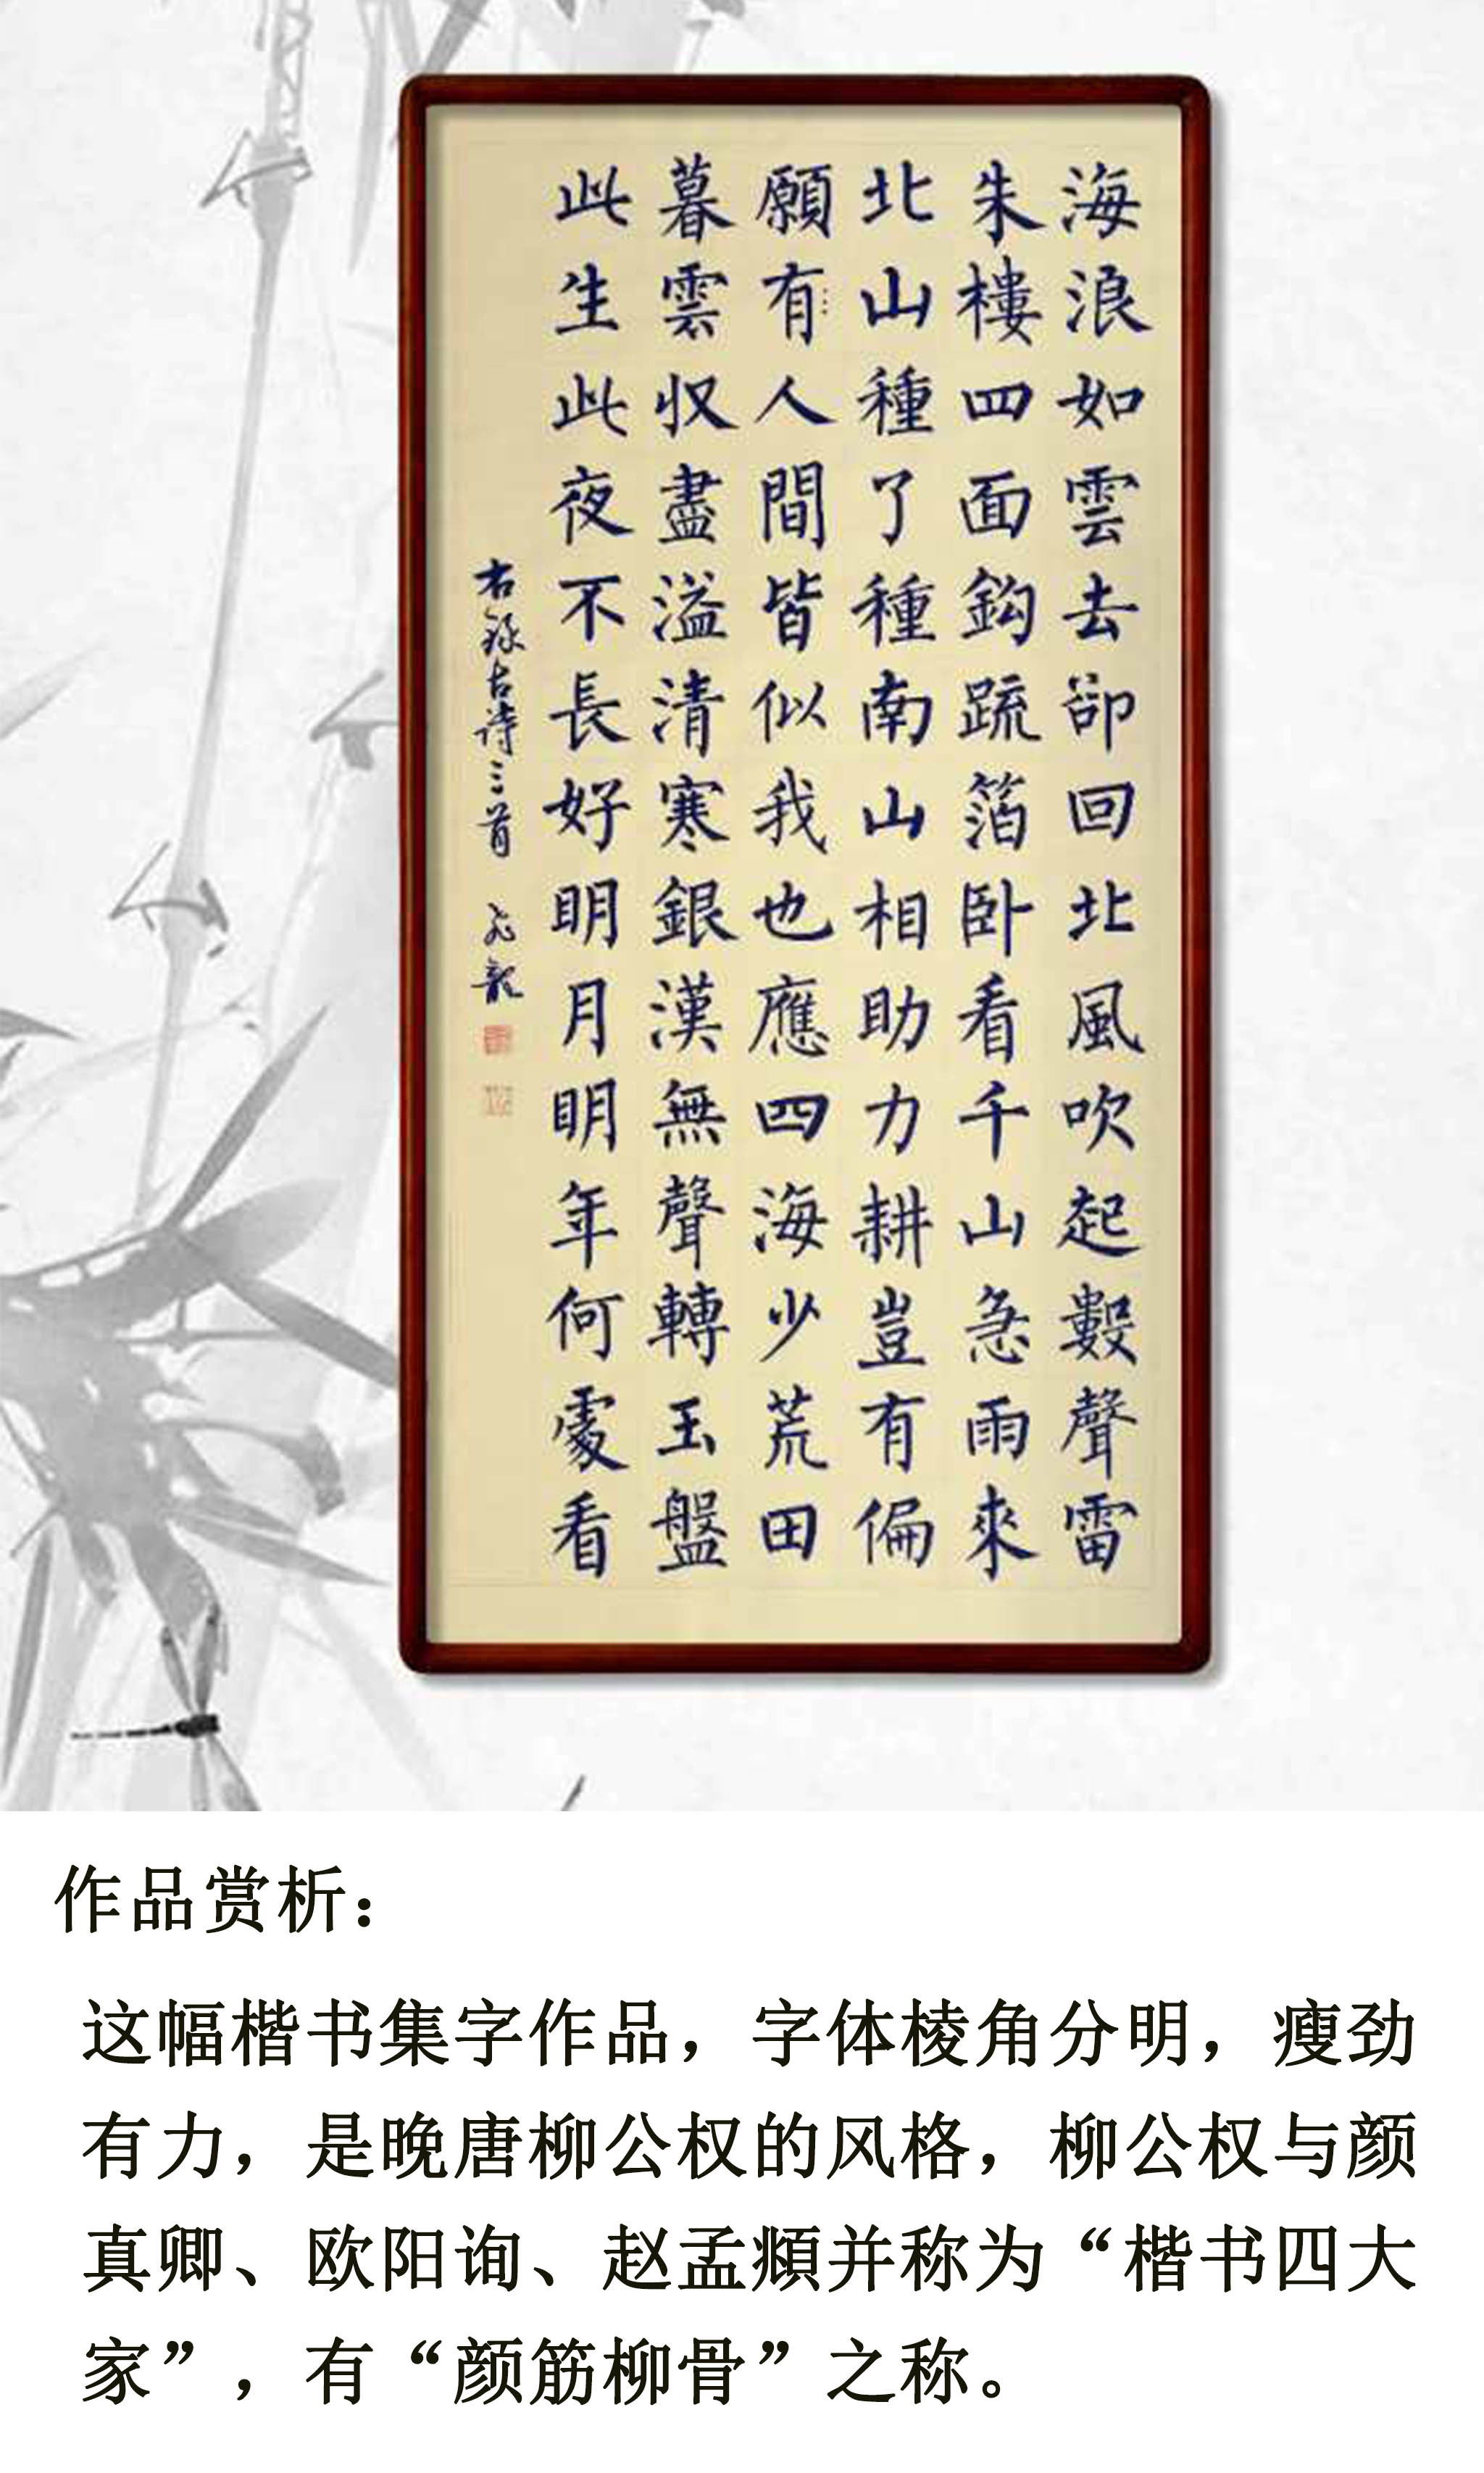 海浪如雲去卻回北風吹起數聲雷
朱樓四面鈎疏箔卧看千山急雨來
北山種了種南山相助力耕豈有偏
願有人間皆似我也應四海少荒田
暮雲収盡溢清寒銀漢無聲轉玉盤
此生此夜不長好明月明年何處看
右錄古詩三首 飛龍
作品赏析：
这幅楷书集字作品，字体棱角分明，瘦劲
有力，是晚唐柳公权的风格，柳公权与颜
真卿、欧阳询、赵孟頫并称为“楷书四大
家”，有“颜筋柳骨”之称。